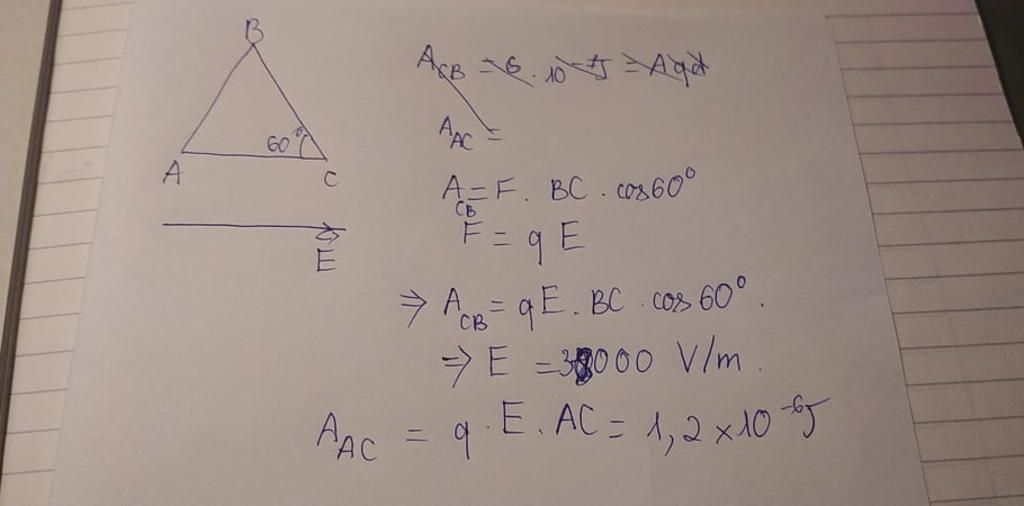 B
60°
A
C
E
A_CB = 6 . 10^-7 J = A qd
A_AC =
A_CB = F . BC . cos60°
F = q E
⇒ A_CB = qE . BC . cos 60° .
⇒ E = 3000 V/m .
A_AC = q . E . AC = 1,2 × 10^-6 J